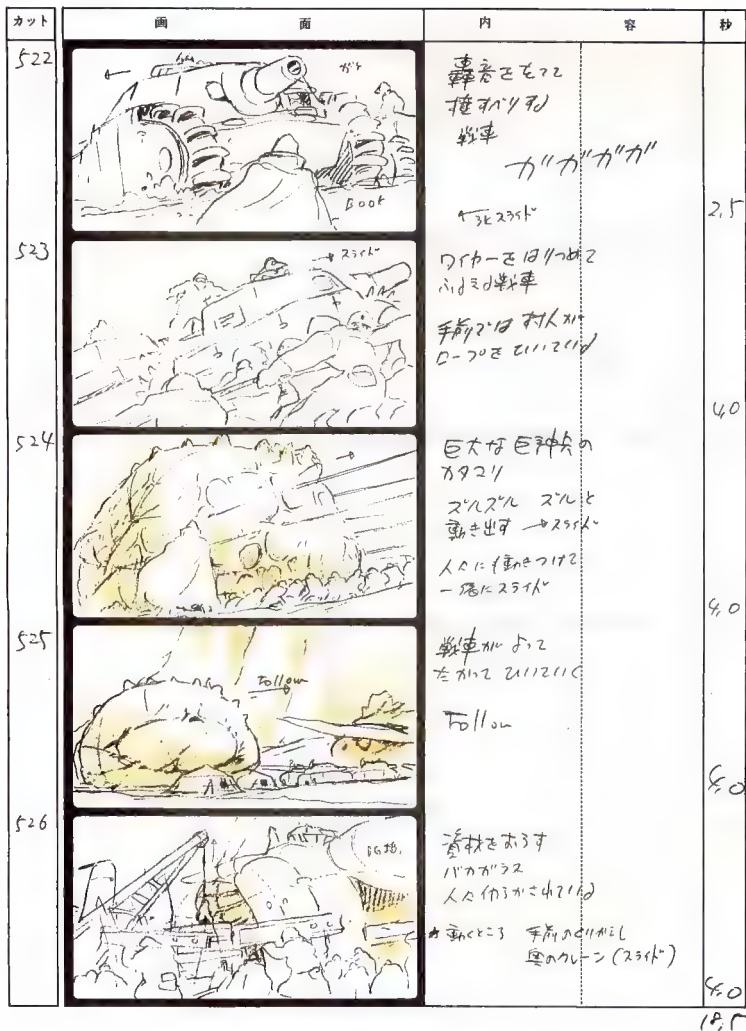 カット 画面 内容 秒
522
ガタ
BOOK
轟音をたてて
横すべりする
戦車
ガガガガ
スライド
2,5
523
スライド
ワイヤーをはりつめて
ふるえる戦車
手前では村人が
ロープをひいている
4,0
524
巨大な巨神兵の
カタマリ
ズルズル ズルと
動き出す →スライド
人々に動きつけて
一緒にスライド
4,0
525
Follow
戦車がよって
たかってひいていく
Follow
4,0
526
BG
資材をおろす
バカガラス
人々 されている
動くところ 手前のくりかえし
奥のクレーン(スライド)
4,0
18,5